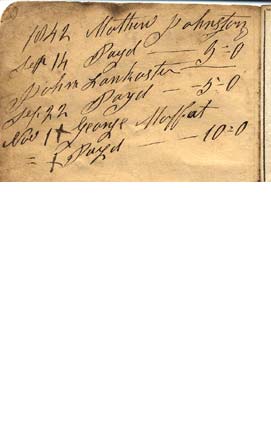 1842 Mathew Johnston
Sep 14 Payd — 5=0
John Lankaster
Sep 22 Payd — 5=0
Nov 11 George Moffat
= £ Payd — 10=0